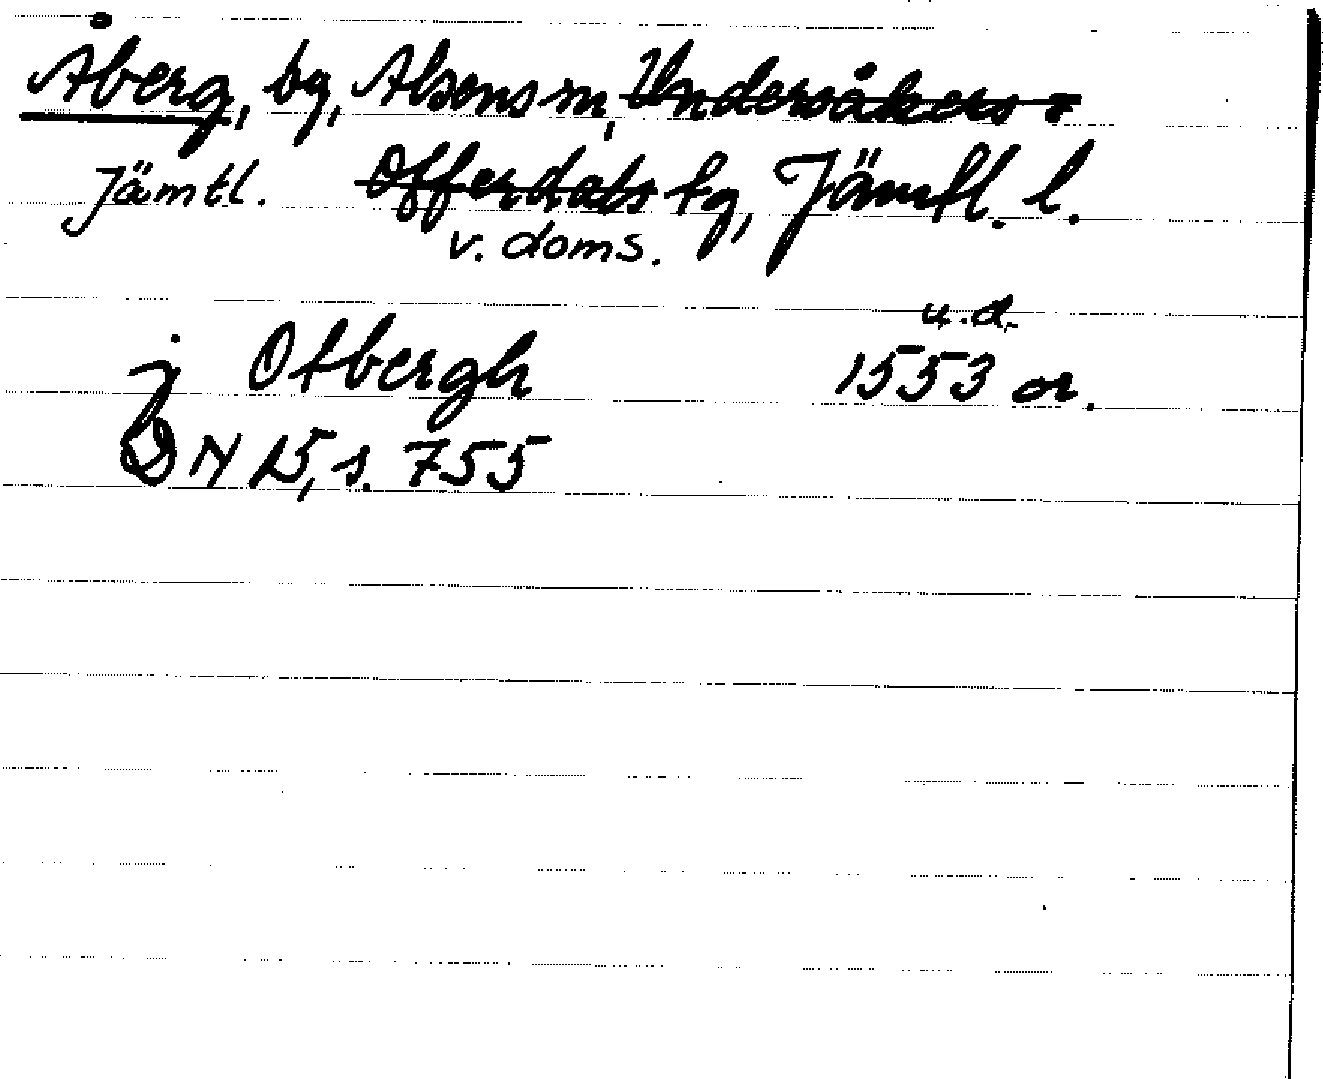 Åberg, by, Alsens sn, Undersåkers o
Jämtl. Offerdals tg, Jämtl. l.
v. doms.
u.d.
j Otbergh 1553 or.
DN 15, s. 755